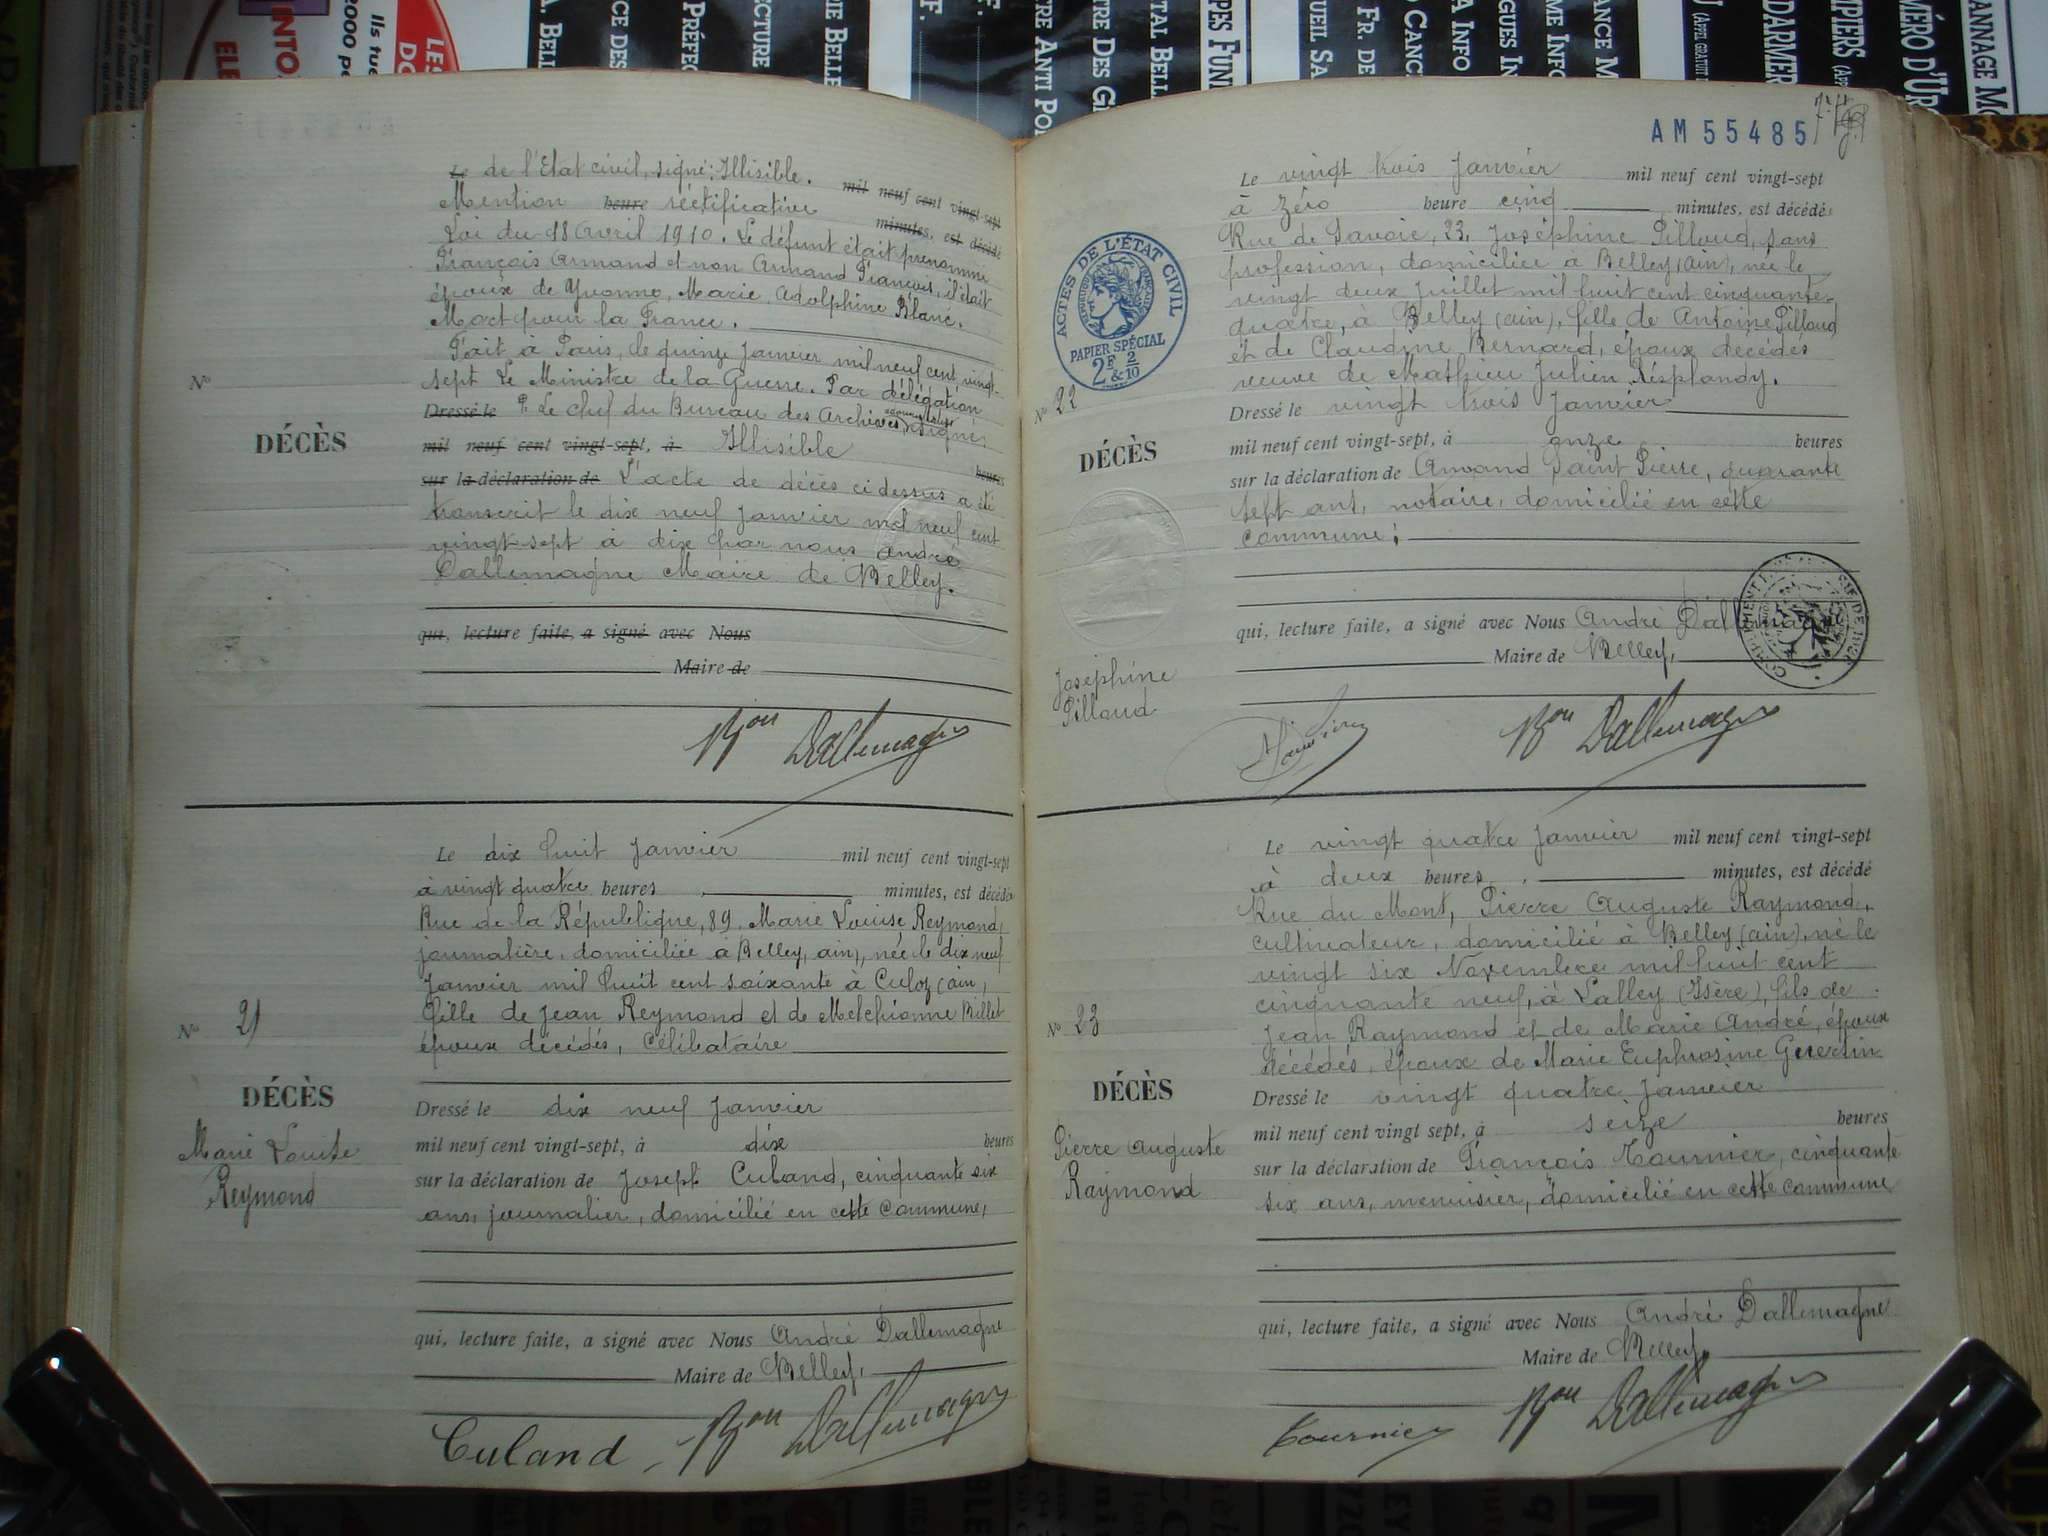 Le de l'Etat civil, signé: Illisible. mil neuf cent vingt-sept
Mention heure réctificative minutes, est décédé
Loi du 18 avril 1910. Le défunt était prénommé
François Armand et non Armand François, il était
époux de Yvonne, Marie Adolphine Blanc.
Mort pour la France.
Fait à Paris, le quinze janvier mil neuf cent vingt-
sept Le Ministre de la Guerre. Par délégation
Dressé le P. Le chef du Bureau des Archives signé:
mil neuf cent vingt-sept, à Illisible
heures
sur la déclaration de L'acte de décès ci dessus a été
transcrit le dix neuf janvier mil neuf cent
vingt-sept à dix par nous andré
Dallemagne Maire de Belley.
qui, lecture faite, a signé avec Nous
Maire de
Bon Dallemagne
N°
DÉCÈS
Le dix huit janvier mil neuf cent vingt-sept
à vingt quatre heures minutes, est décédée
Rue de la République, 89, Marie Louise Reymond,
journalière, domiciliée à Belley, ain), née le dix neuf
janvier mil huit cent soixante à Culoz (ain,
fille de Jean Reymond et de Melchionne Billet
époux décédés, célibataire
Dressé le dix neuf janvier
mil neuf cent vingt-sept, à dix heures
sur la déclaration de Joseph Culand, cinquante six
ans, journalier, domicilié en cette commune,
qui, lecture faite, a signé avec Nous André Dallemagne
Maire de Belley,
Culand Bon Dallemagne
N° 21
DÉCÈS
Marie Louise
Reymond
AM 55485
Le vingt trois janvier mil neuf cent vingt-sept
à zéro heure cinq minutes, est décédée
Rue de Savoie, 23, Joséphine Pilloud, sans
profession, domiciliée à Belley (ain), née le
vingt deux juillet mil huit cent cinquante-
quatre, à Belley (ain), fille de Antoine Pilloud
et de Claudine Bernard, époux décédés
veuve de Mathieu Julien Résplandy.
Dressé le vingt trois janvier
mil neuf cent vingt-sept, à onze heures
sur la déclaration de Amand Saint Pierre, quarante
sept ans, notaire, domicilié en cette
commune;
qui, lecture faite, a signé avec Nous André Dallemagne
Maire de Belley,
Bon Dallemagne
ACTES DE L'ÉTAT CIVIL
PAPIER SPÉCIAL
2F & 2/10
N° 22
DÉCÈS
Joséphine
Pilloud
Le vingt quatre janvier mil neuf cent vingt-sept
à deux heures, minutes, est décédé
Rue du Mont, Pierre Auguste Raymond,
cultivateur, domicilié à Belley (ain), né le
vingt six Novembre mil huit cent
cinquante neuf, à Lalley (Isère), fils de
Jean Raymond et de Marie André, époux
décédés, époux de Marie Euphrosine Guertin
Dressé le vingt quatre janvier
mil neuf cent vingt sept, à seize heures
sur la déclaration de François Tournier, cinquante
six ans, menuisier, domicilié en cette commune
qui, lecture faite, a signé avec Nous André Dallemagne
Maire de Belley,
Tournier Bon Dallemagne
N° 23
DÉCÈS
Pierre Auguste
Raymond